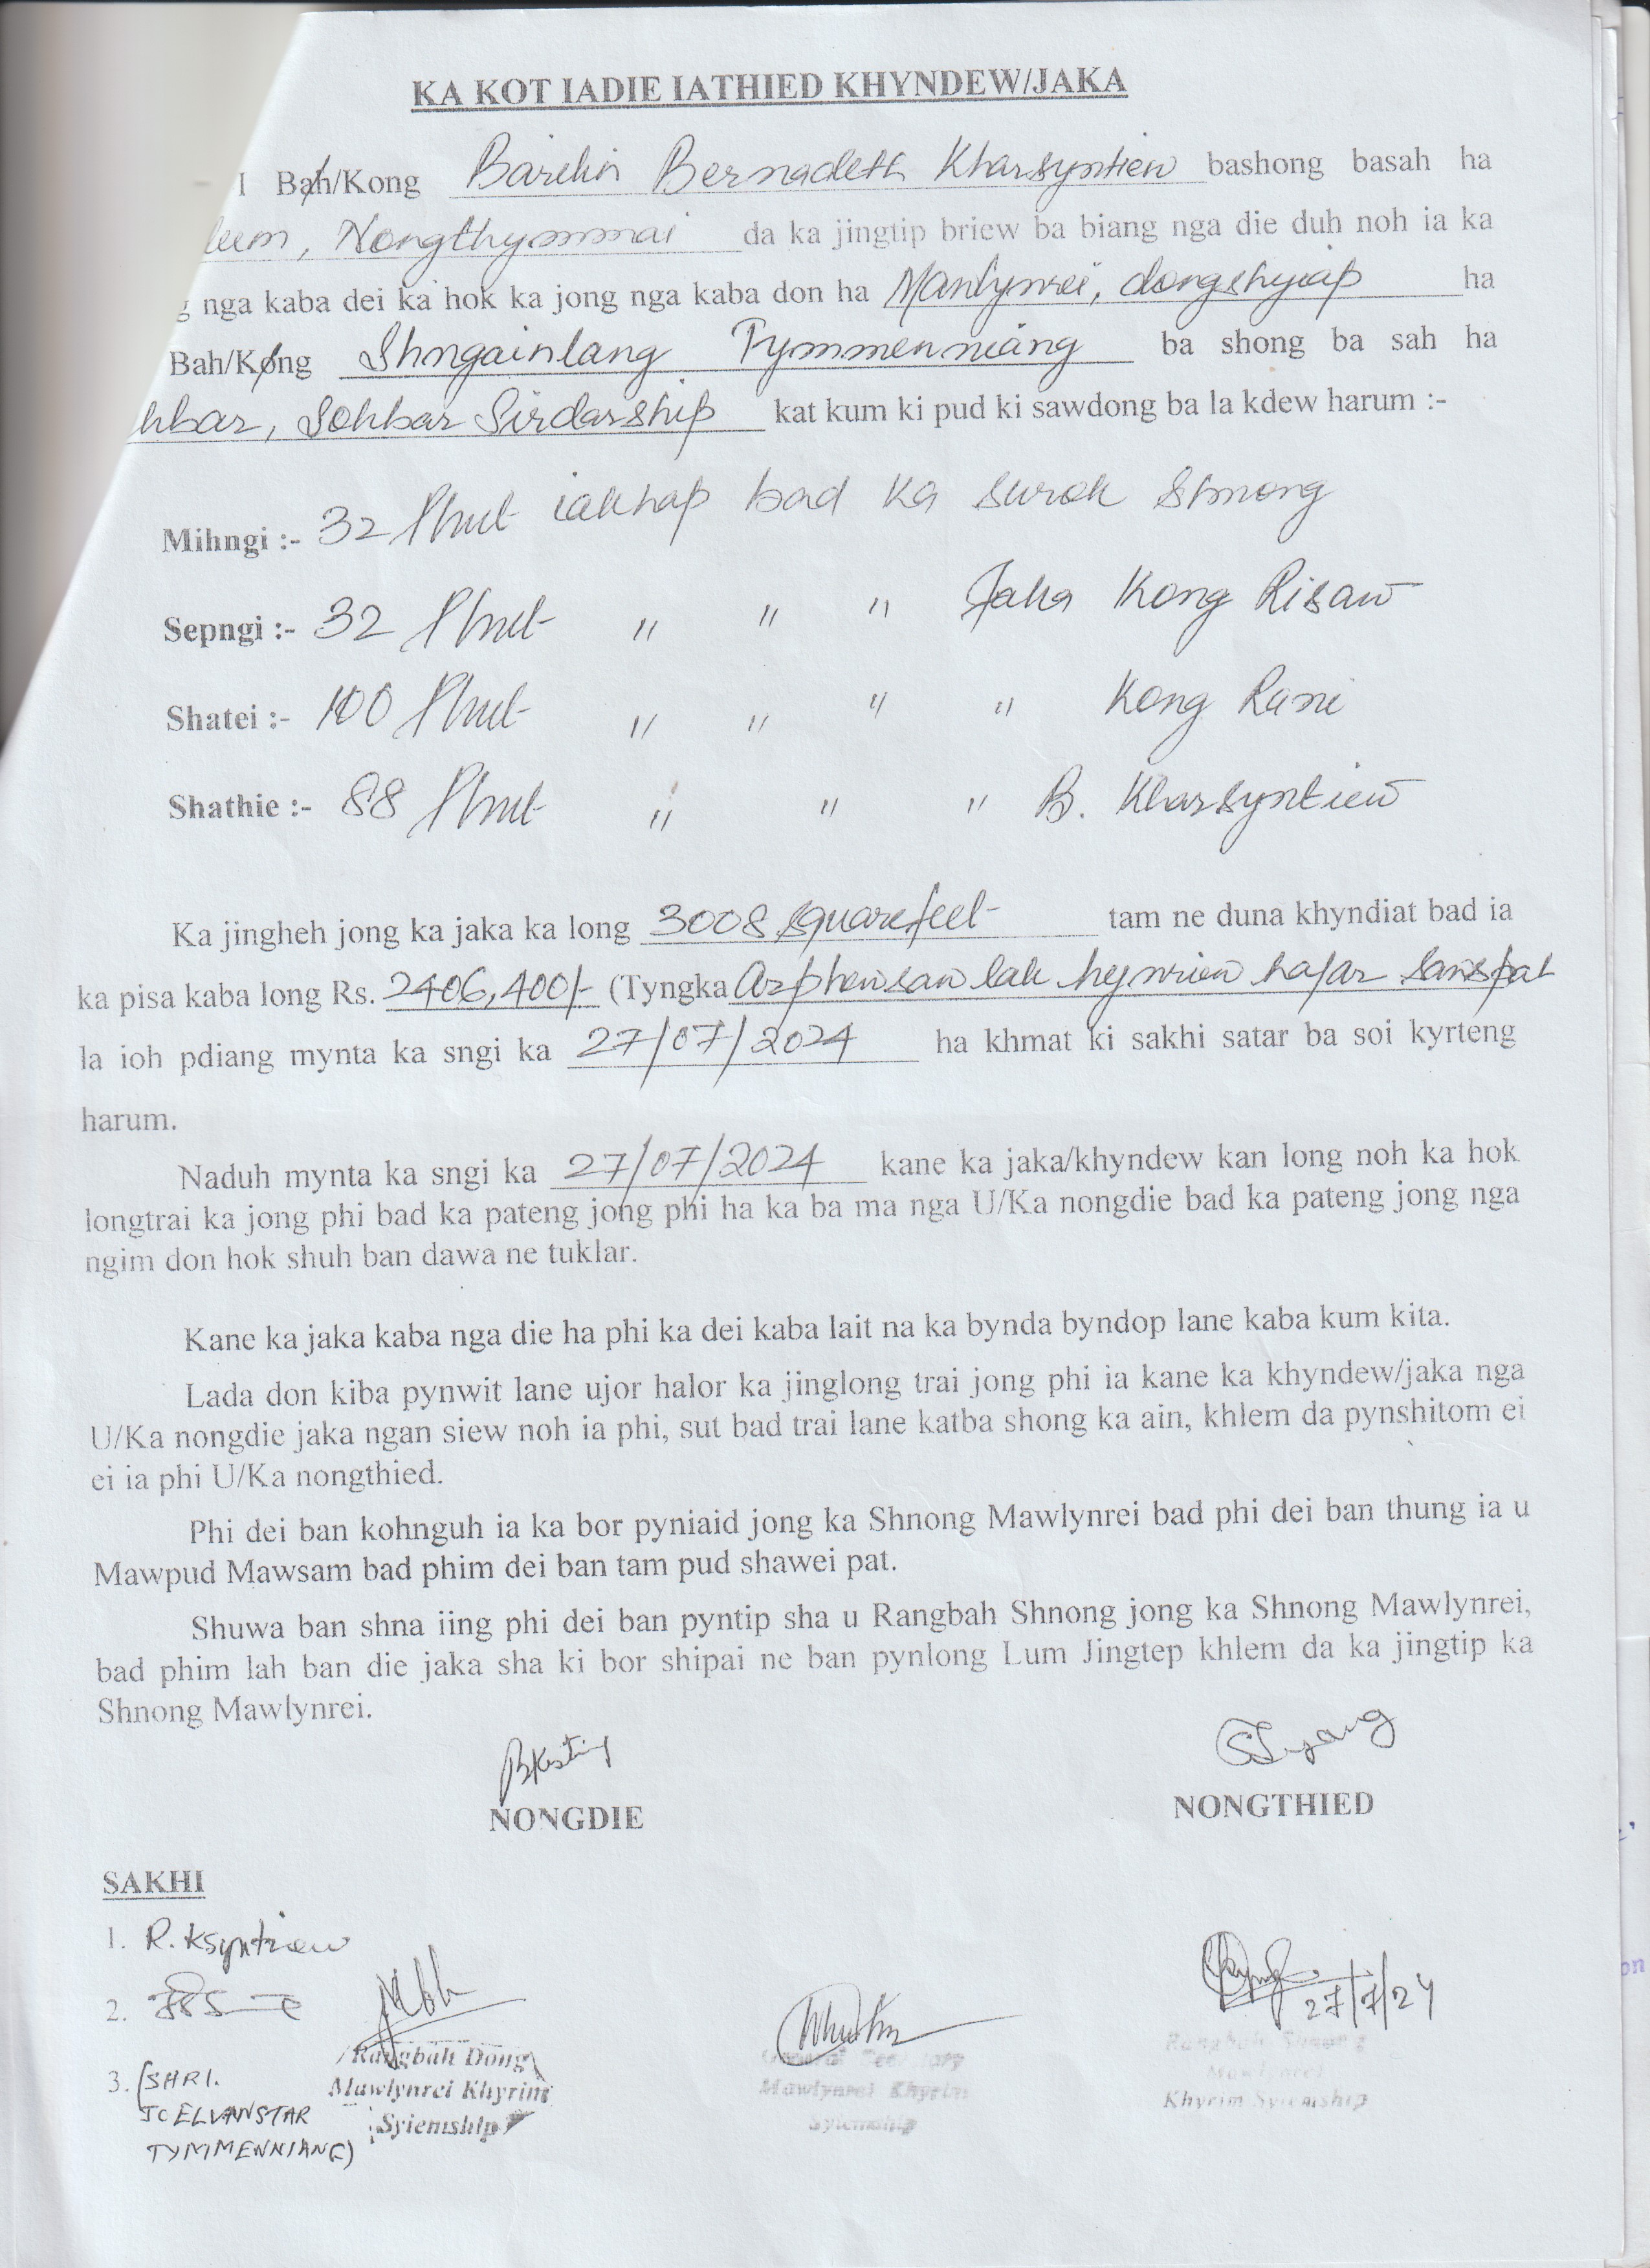 KA KOT IADIE IATHIED KHYNDEW/JAKA
I Bah/Kong Barelin Bernadeth Kharsyntiew bashong basah ha
leem, Nongthymmai da ka jingtip briew ba biang nga die duh noh ia ka
g nga kaba dei ka hok ka jong nga kaba don ha Mawlynrei, dongshyiap ha
Bah/Kong Shngainlang Tymmenniang ba shong ba sah ha
hbar, Sohbar Sirdarship kat kum ki pud ki sawdong ba la kdew harum :-
Mihngi :- 32 Phut iakhap bad ka surok shnong
Sepngi :- 32 Phut " " " Jaka Kong Risaw
Shatei :- 100 Phut " " " " Kong Rani
Shathie :- 88 Phut " " " B. Kharsyntiew
Ka jingheh jong ka jaka ka long 3008 squarefeet tam ne duna khyndiat bad ia
ka pisa kaba long Rs. 2406,400/- (Tyngka Arphewsaw lak hynriew hajar sawspah
la ioh pdiang mynta ka sngi ka 27/07/2024 ha khmat ki sakhi satar ba soi kyrteng
harum.
Naduh mynta ka sngi ka 27/07/2024 kane ka jaka/khyndew kan long noh ka hok
longtrai ka jong phi bad ka pateng jong phi ha ka ba ma nga U/Ka nongdie bad ka pateng jong nga
ngim don hok shuh ban dawa ne tuklar.
Kane ka jaka kaba nga die ha phi ka dei kaba lait na ka bynda byndop lane kaba kum kita.
Lada don kiba pynwit lane ujor halor ka jinglong trai jong phi ia kane ka khyndew/jaka nga
U/Ka nongdie jaka ngan siew noh ia phi, sut bad trai lane katba shong ka ain, khlem da pynshitom ei
ei ia phi U/Ka nongthied.
Phi dei ban kohnguh ia ka bor pyniaid jong ka Shnong Mawlynrei bad phi dei ban thung ia u
Mawpud Mawsam bad phim dei ban tam pud shawei pat.
Shuwa ban shna iing phi dei ban pyntip sha u Rangbah Shnong jong ka Shnong Mawlynrei,
bad phim lah ban die jaka sha ki bor shipai ne ban pynlong Lum Jingtep khlem da ka jingtip ka
Shnong Mawlynrei.
NONGDIE NONGTHIED
SAKHI
1. R. Ksyntiew
2.
27/7/24
3. (SHRI.
JOELVANSTAR
TYMMENNIANG)
Rangbah Dong
Mawlynrei Khyrim
Syiemship
General Secretary
Mawlynrei Khyrim
Syiemship
Rangbah Shnong
Mawlynrei
Khyrim Syiemship